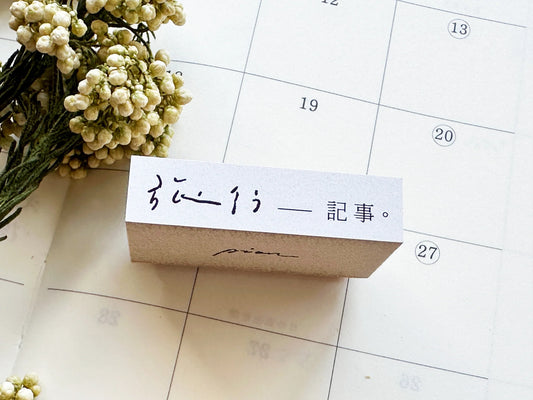 12
13
19
20
— 記事。
pion
27